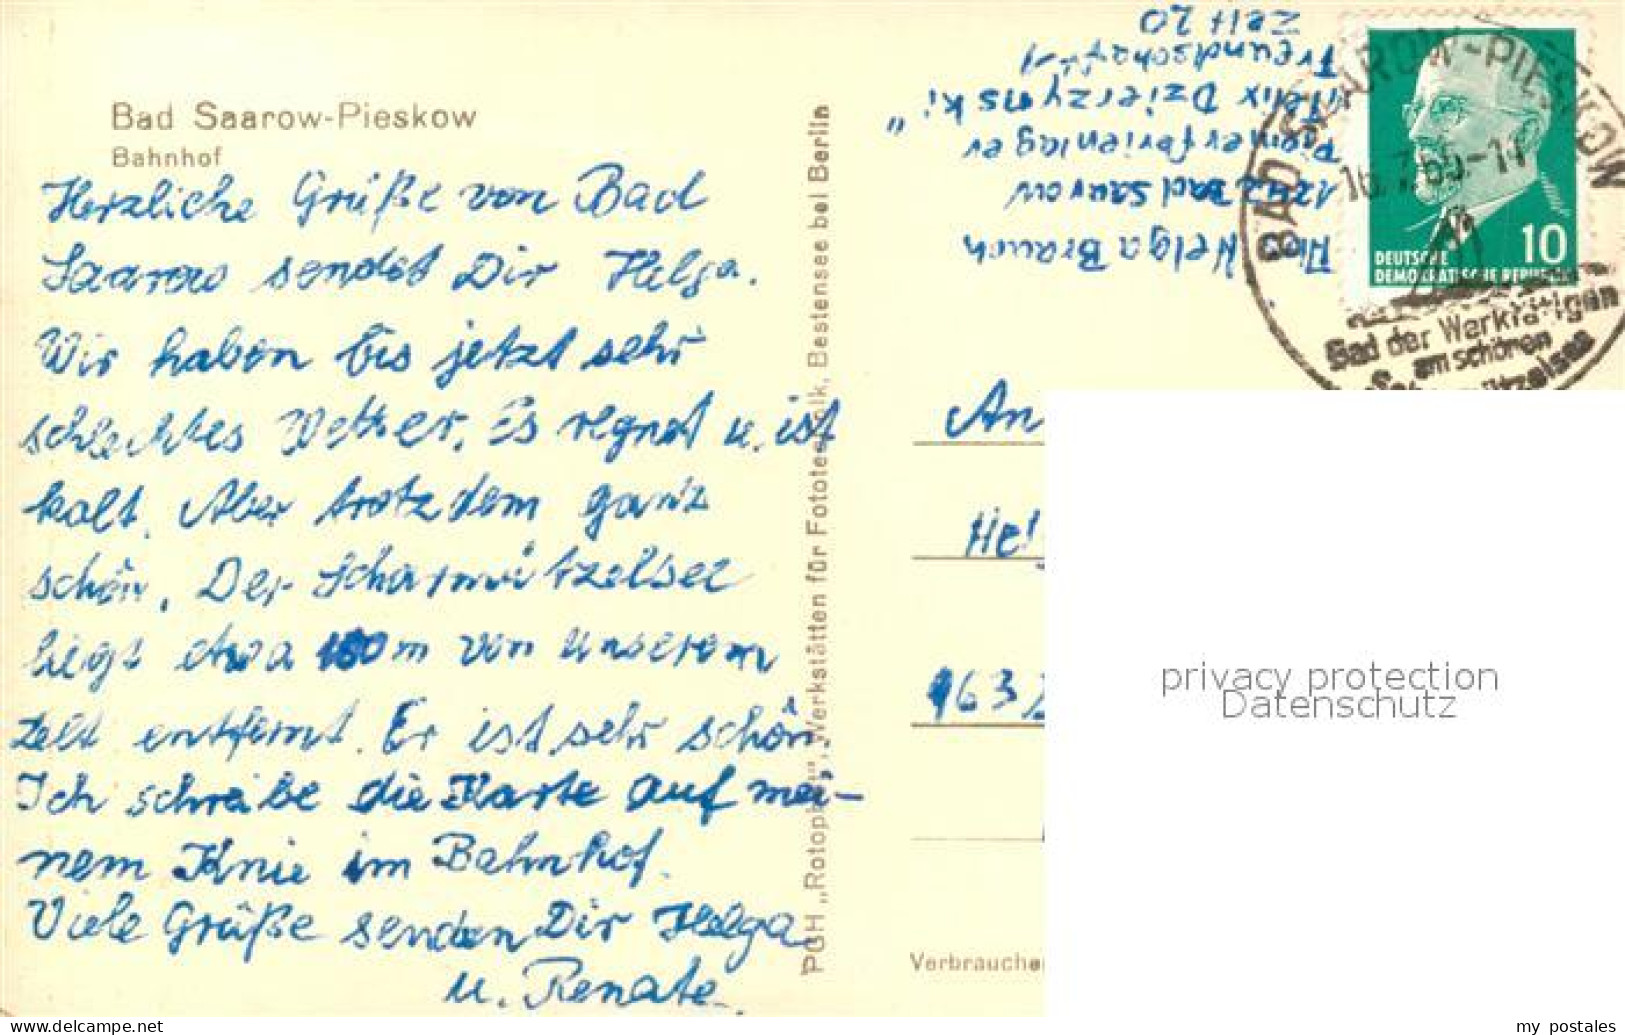 Bad Saarow-Pieskow
Bahnhof
Herzliche Grüße von Bad
Saarow sendet Dir Helga.
Wir haben bis jetzt sehr
schlechtes Wetter. Es regnet u. ist
kalt. Aber trotzdem ganz
schön. Der Scharmützelsee
liegt etwa 100m von unserem
Zelt entfernt. Er ist sehr schön.
Ich schreibe die Karte auf mei-
nem Knie im Bahnhof.
Viele Grüße senden Dir Helga
u. Renate.
PGH „Rotophot", Werkstätten für Fototechnik, Bestensee bei Berlin
Abs Helga Brauch
1242 Bad Saarow
Pionierferienlager
"Felix Dzierzynski"
Freundschaft 1
Zelt 20
BAD SAAROW-PIESKOW
16.7.65-11
Bad der Werktätigen
am schönen
Scharmützelsee
10
DEUTSCHE
DEMOKRATISCHE REPUBLIK
An
Hel
1637
Verbrauche
privacy protection
Datenschutz
www.delcampe.net
my_postales